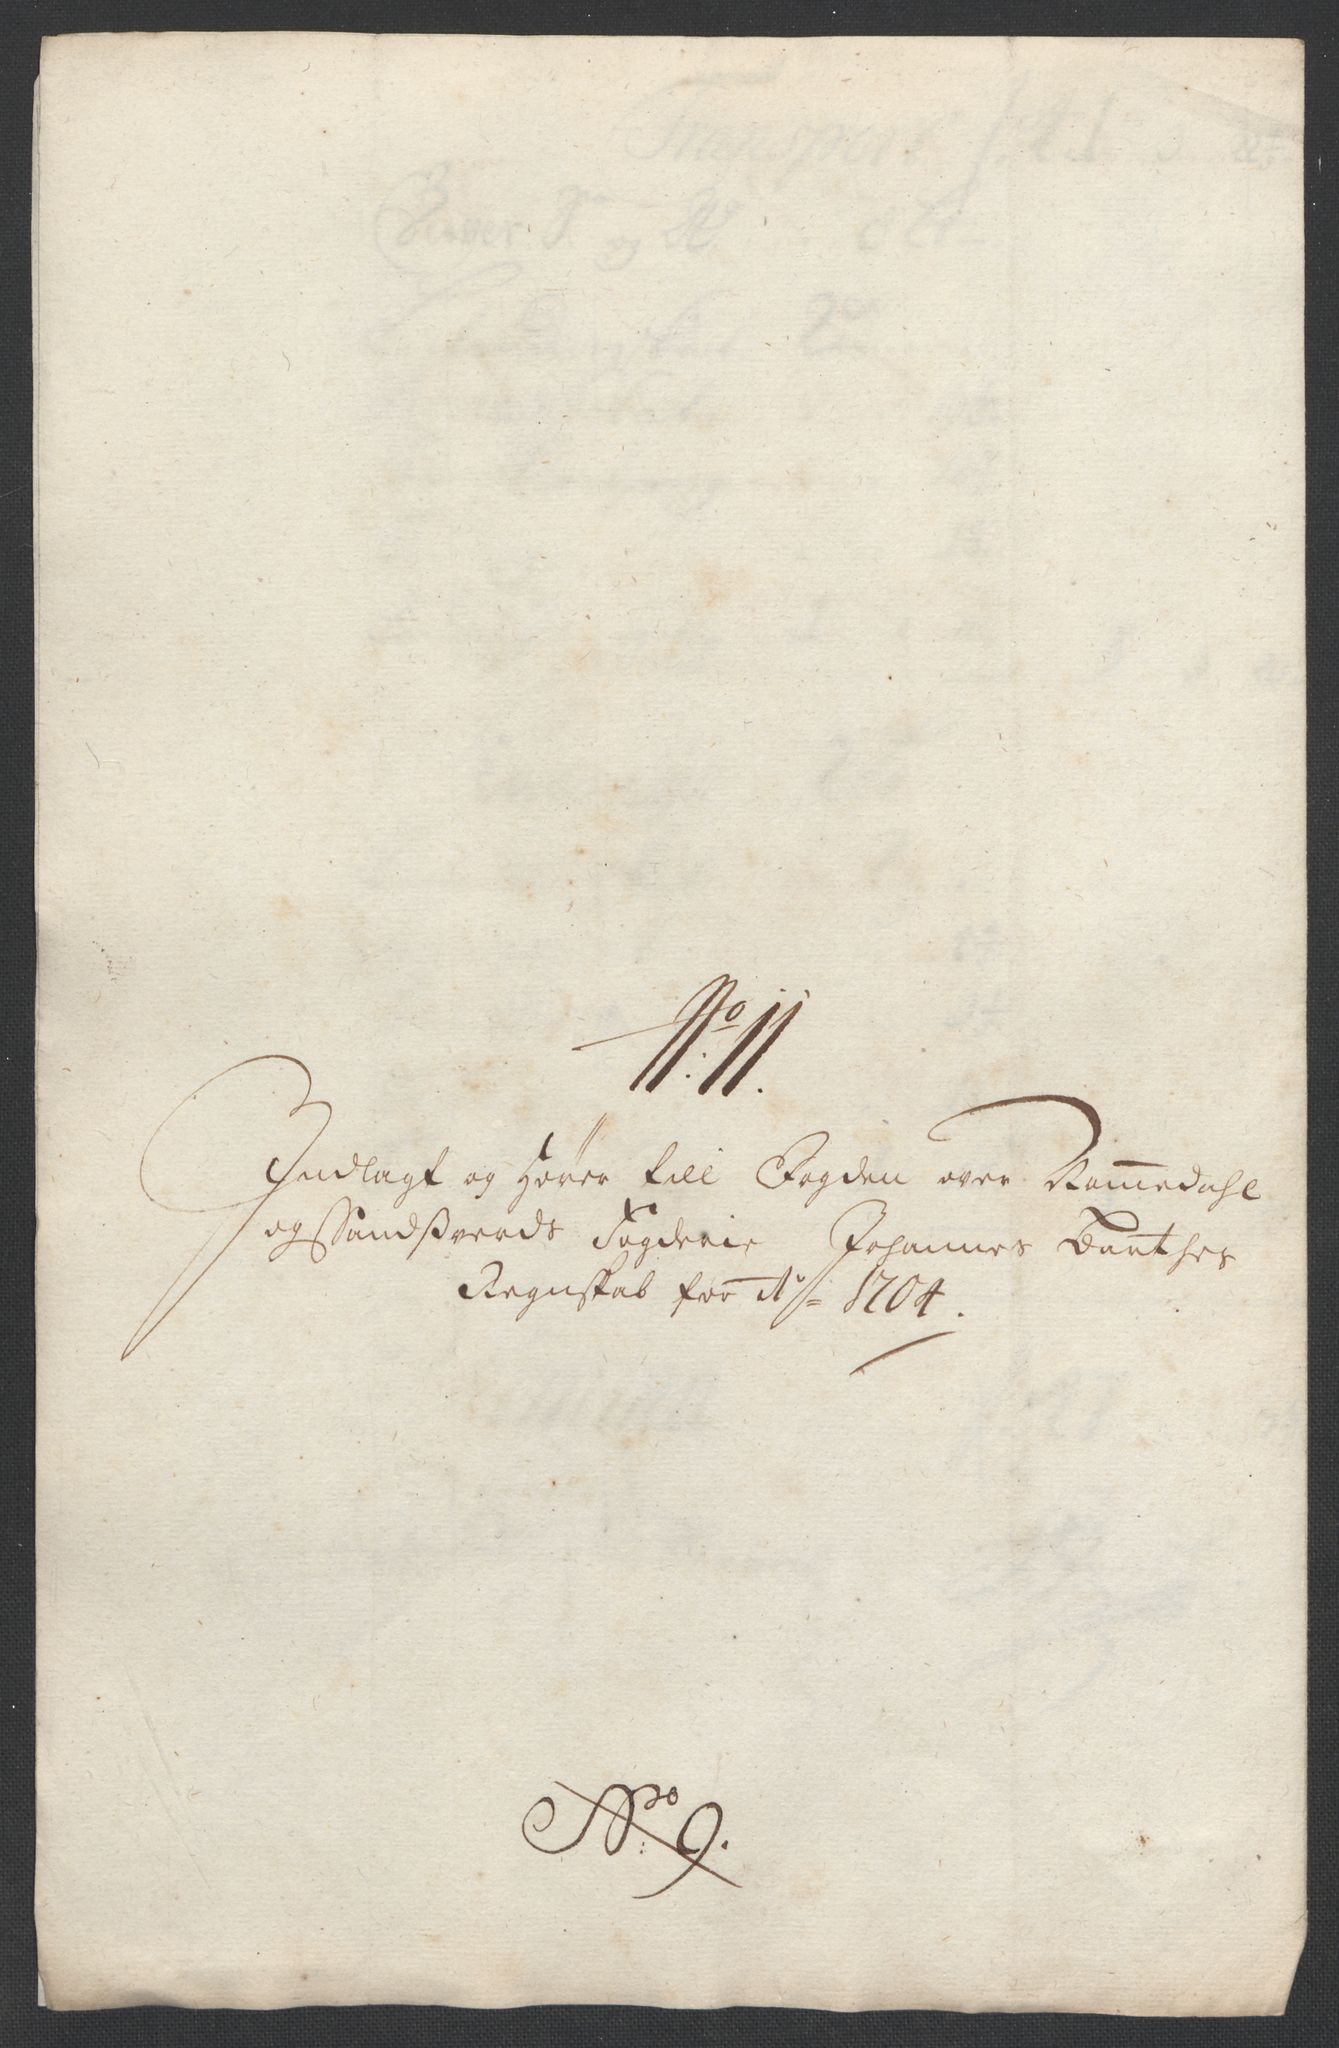 No: 11.
Indlagt og hører till Fogden over Nommedahl
og Sandsverds Fogderie Johannes Barthes
Regnskab for Ao 1704.
No: 9.